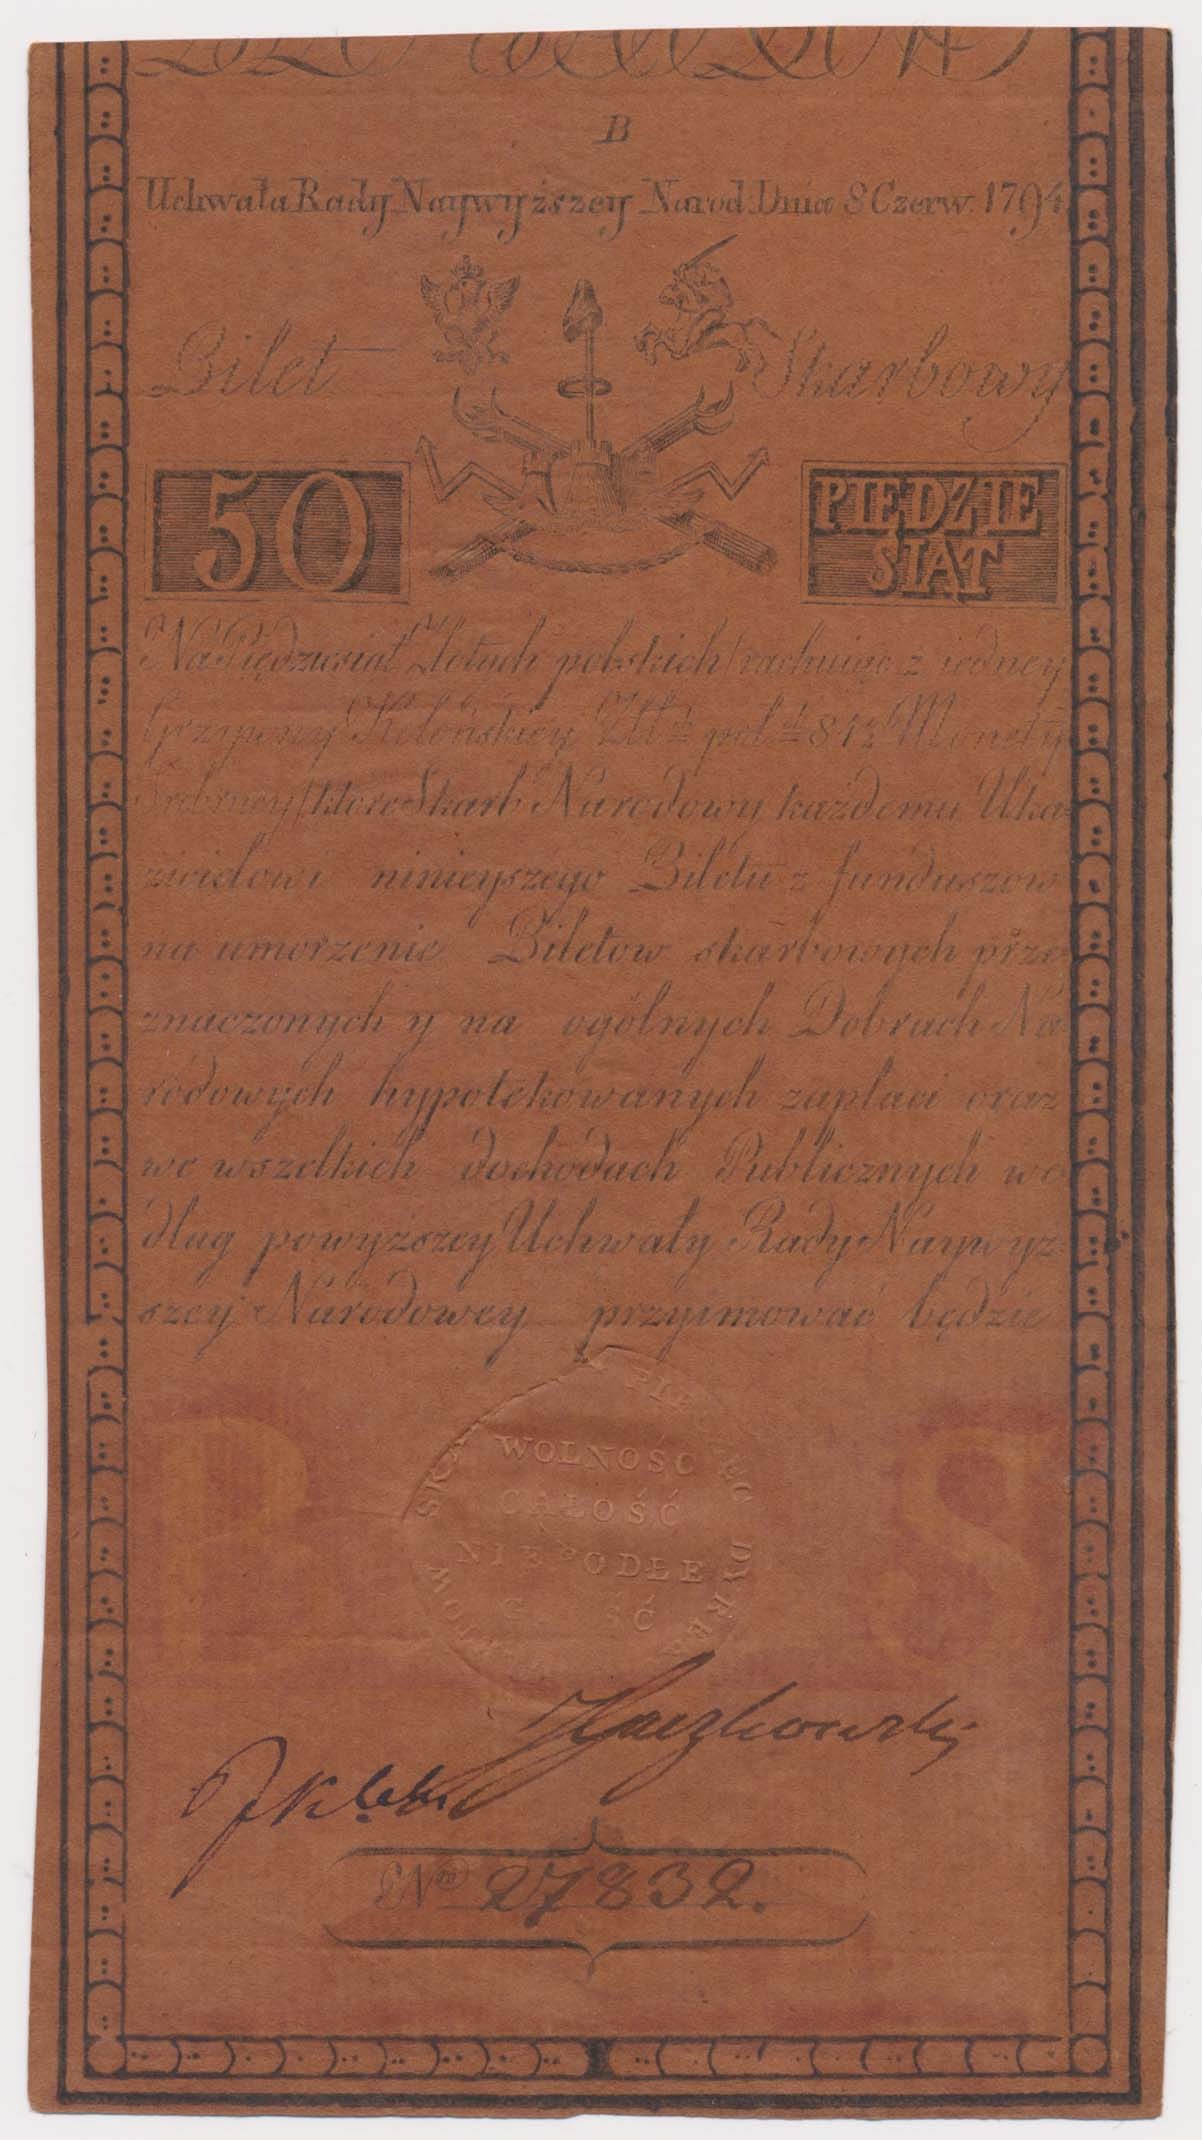 B
Uchwała Rady Naywyższey Narod: Dnia 8 Czerw. 1794
Bilet Skarbowy
50
PIĘDZIE
SIĄT
Na Pięдziesiąt Złotych polskich / rachuiąc z iedney
Grzywny Kolońskiey Złł: pol: 84½ Monety
srebrney / które Skarb Narodowy każdemu Uka-
zicielowi ninieyszego Biletu z funduszow
na umorzenie Biletow skarbowych prze-
znaczonych y na ogólnych Dobrach Na-
rodowych hypotekowanych zapłaci oraz
we wszelkich dochodach Publicznych we-
dług powyższey Uchwały Rady Naywyż-
szey Narodowey przyimować będzie
WOLNOŚĆ
CAŁOŚĆ
NIEPODŁE
GŁOŚĆ
B S
No 27832.